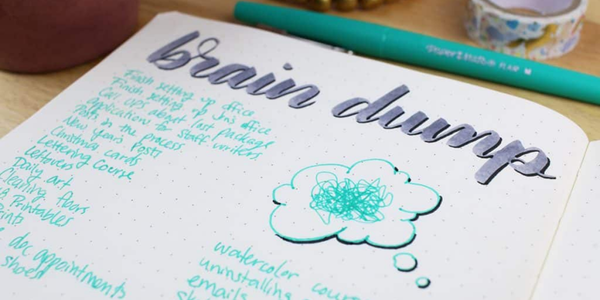 brain dump
Finish setting up office
Finish setting up his office
Call UPS about lost package
Application to staff writers
in the process
New Years Posts
Christmas cards
Lettering Course
Leftovers
Daily art
Cleaning floors
Printables
doc appointments
shoes
watercolor
uninstalling
emails